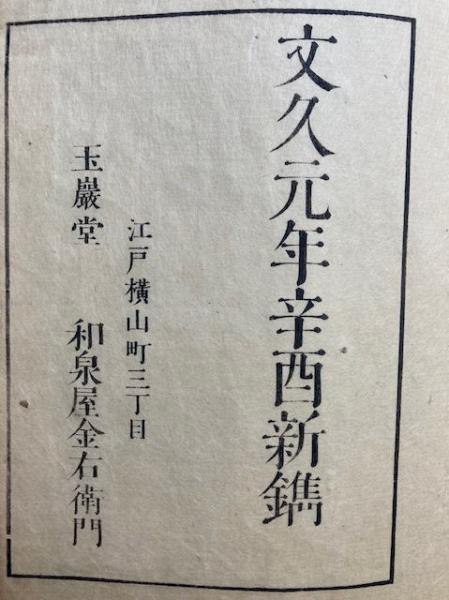 文久元年辛酉新鐫
江戸橫山町三丁目
玉巖堂 和泉屋金右衛門